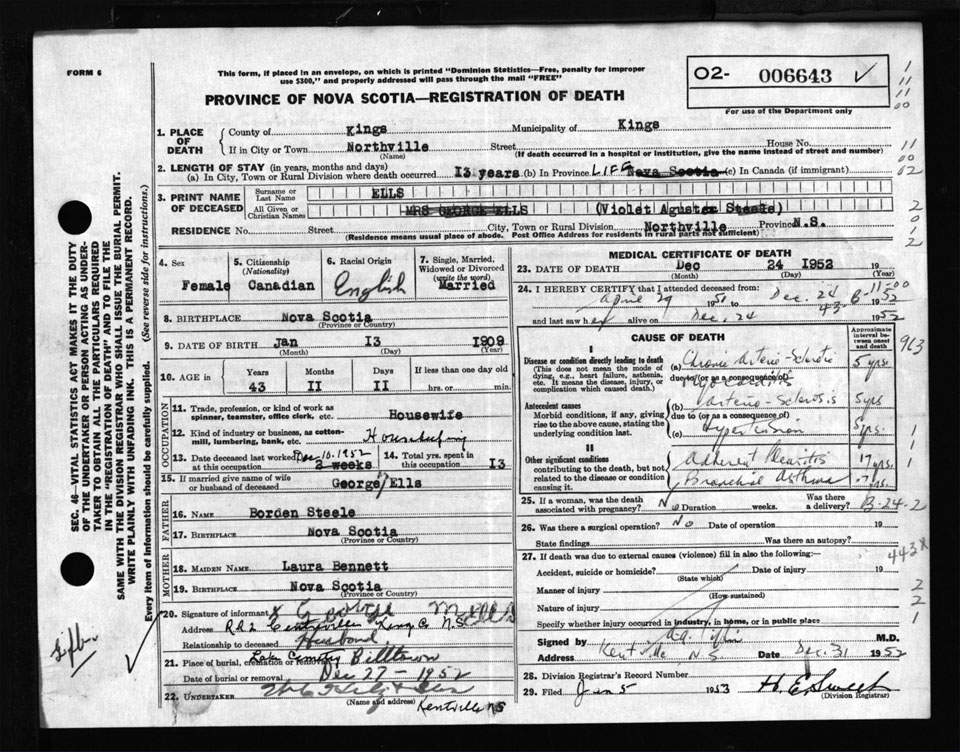 FORM 6
This form, if placed in an envelope, on which is printed "Dominion Statistics—Free, penalty for improper
use $300," and properly addressed will pass through the mail "FREE"
O2- 006643
For use of the Department only
PROVINCE OF NOVA SCOTIA—REGISTRATION OF DEATH
1. PLACE OF DEATH { County of Kings Municipality of Kings
If in City or Town Northville Street House No.
(Name) (If death occurred in a hospital or institution, give the name instead of street and number)
2. LENGTH OF STAY (in years, months and days)
(a) In City, Town or Rural Division where death occurred 13 years (b) In Province LIFE Nova Scotia (c) In Canada (if immigrant)
3. PRINT NAME OF DECEASED
Surname or Last Name ELLS
All Given or Christian Names MRS GEORGE ELLS (Violet Aguster Steele)
RESIDENCE No. Street City, Town or Rural Division Northville Province N.S.
(Residence means usual place of abode. Post Office Address for residents in rural parts not sufficient)
4. Sex
Female
5. Citizenship
(Nationality)
Canadian
6. Racial Origin
English
7. Single, Married,
Widowed or Divorced
(write the word)
Married
8. BIRTHPLACE Nova Scotia
(Province or Country)
9. DATE OF BIRTH Jan 13 1909
(Month) (Day) (Year)
10. AGE in
Years Months Days If less than one day old
43 11 11 hrs. or min.
OCCUPATION
11. Trade, profession, or kind of work as
spinner, teamster, office clerk, etc. Housewife
12. Kind of industry or business, as cotton-
mill, lumbering, bank, etc.
13. Date deceased last worked Dec 10. 1952
at this occupation 2 weeks
14. Total yrs. spent in
this occupation 13
15. If married give name of wife
or husband of deceased George Ells
FATHER
16. NAME Borden Steele
17. BIRTHPLACE Nova Scotia
(Province or Country)
MOTHER
18. MAIDEN NAME Laura Bennett
19. BIRTHPLACE Nova Scotia
(Province or Country)
20. Signature of informant X George M Ells
Address R.R.2 Centreville Kings Co N.S.
Relationship to deceased Husband
21. Place of burial, cremation or removal Cemetery Billtown
Date of burial or removal Dec 27 - 1952
22. UNDERTAKER
(Name and address) Kentville NS
MEDICAL CERTIFICATE OF DEATH
23. DATE OF DEATH Dec 24 1952 19
(Month) (Day) (Year)
24. I HEREBY CERTIFY that I attended deceased from:
April 29 1951 to Dec. 24 1952
and last saw her alive on Dec. 24 1952
CAUSE OF DEATH
Approximate
interval be-
tween onset
and death
I
Disease or condition directly leading to death
(This does not mean the mode of
dying, e.g., heart failure, asthenia,
etc. It means the disease, injury, or
complication which caused death.)
(a) Chronic Arterio-Sclerotic 5 yrs.
due to (or as a consequence of)
Antecedent causes
Morbid conditions, if any, giving
rise to the above cause, stating the
underlying condition last.
(b) Arterio-Sclerosis 5 yrs
due to (or as a consequence of)
(c) Hypertension 5 yrs.
II
Other significant conditions
contributing to the death, but not
related to the disease or condition
causing it.
Adherent Pleuritis 17 yrs.
Bronchial Asthma
25. If a woman, was the death
associated with pregnancy? No Duration weeks. Was there
a delivery?
26. Was there surgical operation? No Date of operation 19
State findings Was there an autopsy?
27. If death was due to external causes (violence) fill in also the following:—
Accident, suicide or homicide? Date of injury 19
(State which)
Manner of injury
(How sustained)
Nature of injury
Specify whether injury occurred in industry, in home, or in public place
Signed by M.D.
Address Kentville, N.S. Date Dec. 31 1952
28. Division Registrar's Record Number
29. Filed Jan 5 1953 H. E. Sweet
(Division Registrar)
SEC. 46—VITAL STATISTICS ACT MAKES IT THE DUTY
OF THE UNDERTAKER OR PERSON ACTING AS UNDER-
TAKER TO OBTAIN ALL THE PARTICULARS REQUIRED
IN THE "REGISTRATION OF DEATH" AND TO FILE THE
SAME WITH THE DIVISION REGISTRAR WHO SHALL ISSUE THE BURIAL PERMIT.
WRITE PLAINLY WITH UNFADING INK. THIS IS A PERMANENT RECORD.
Every item of Information should be carefully supplied. (See reverse side for instructions.)